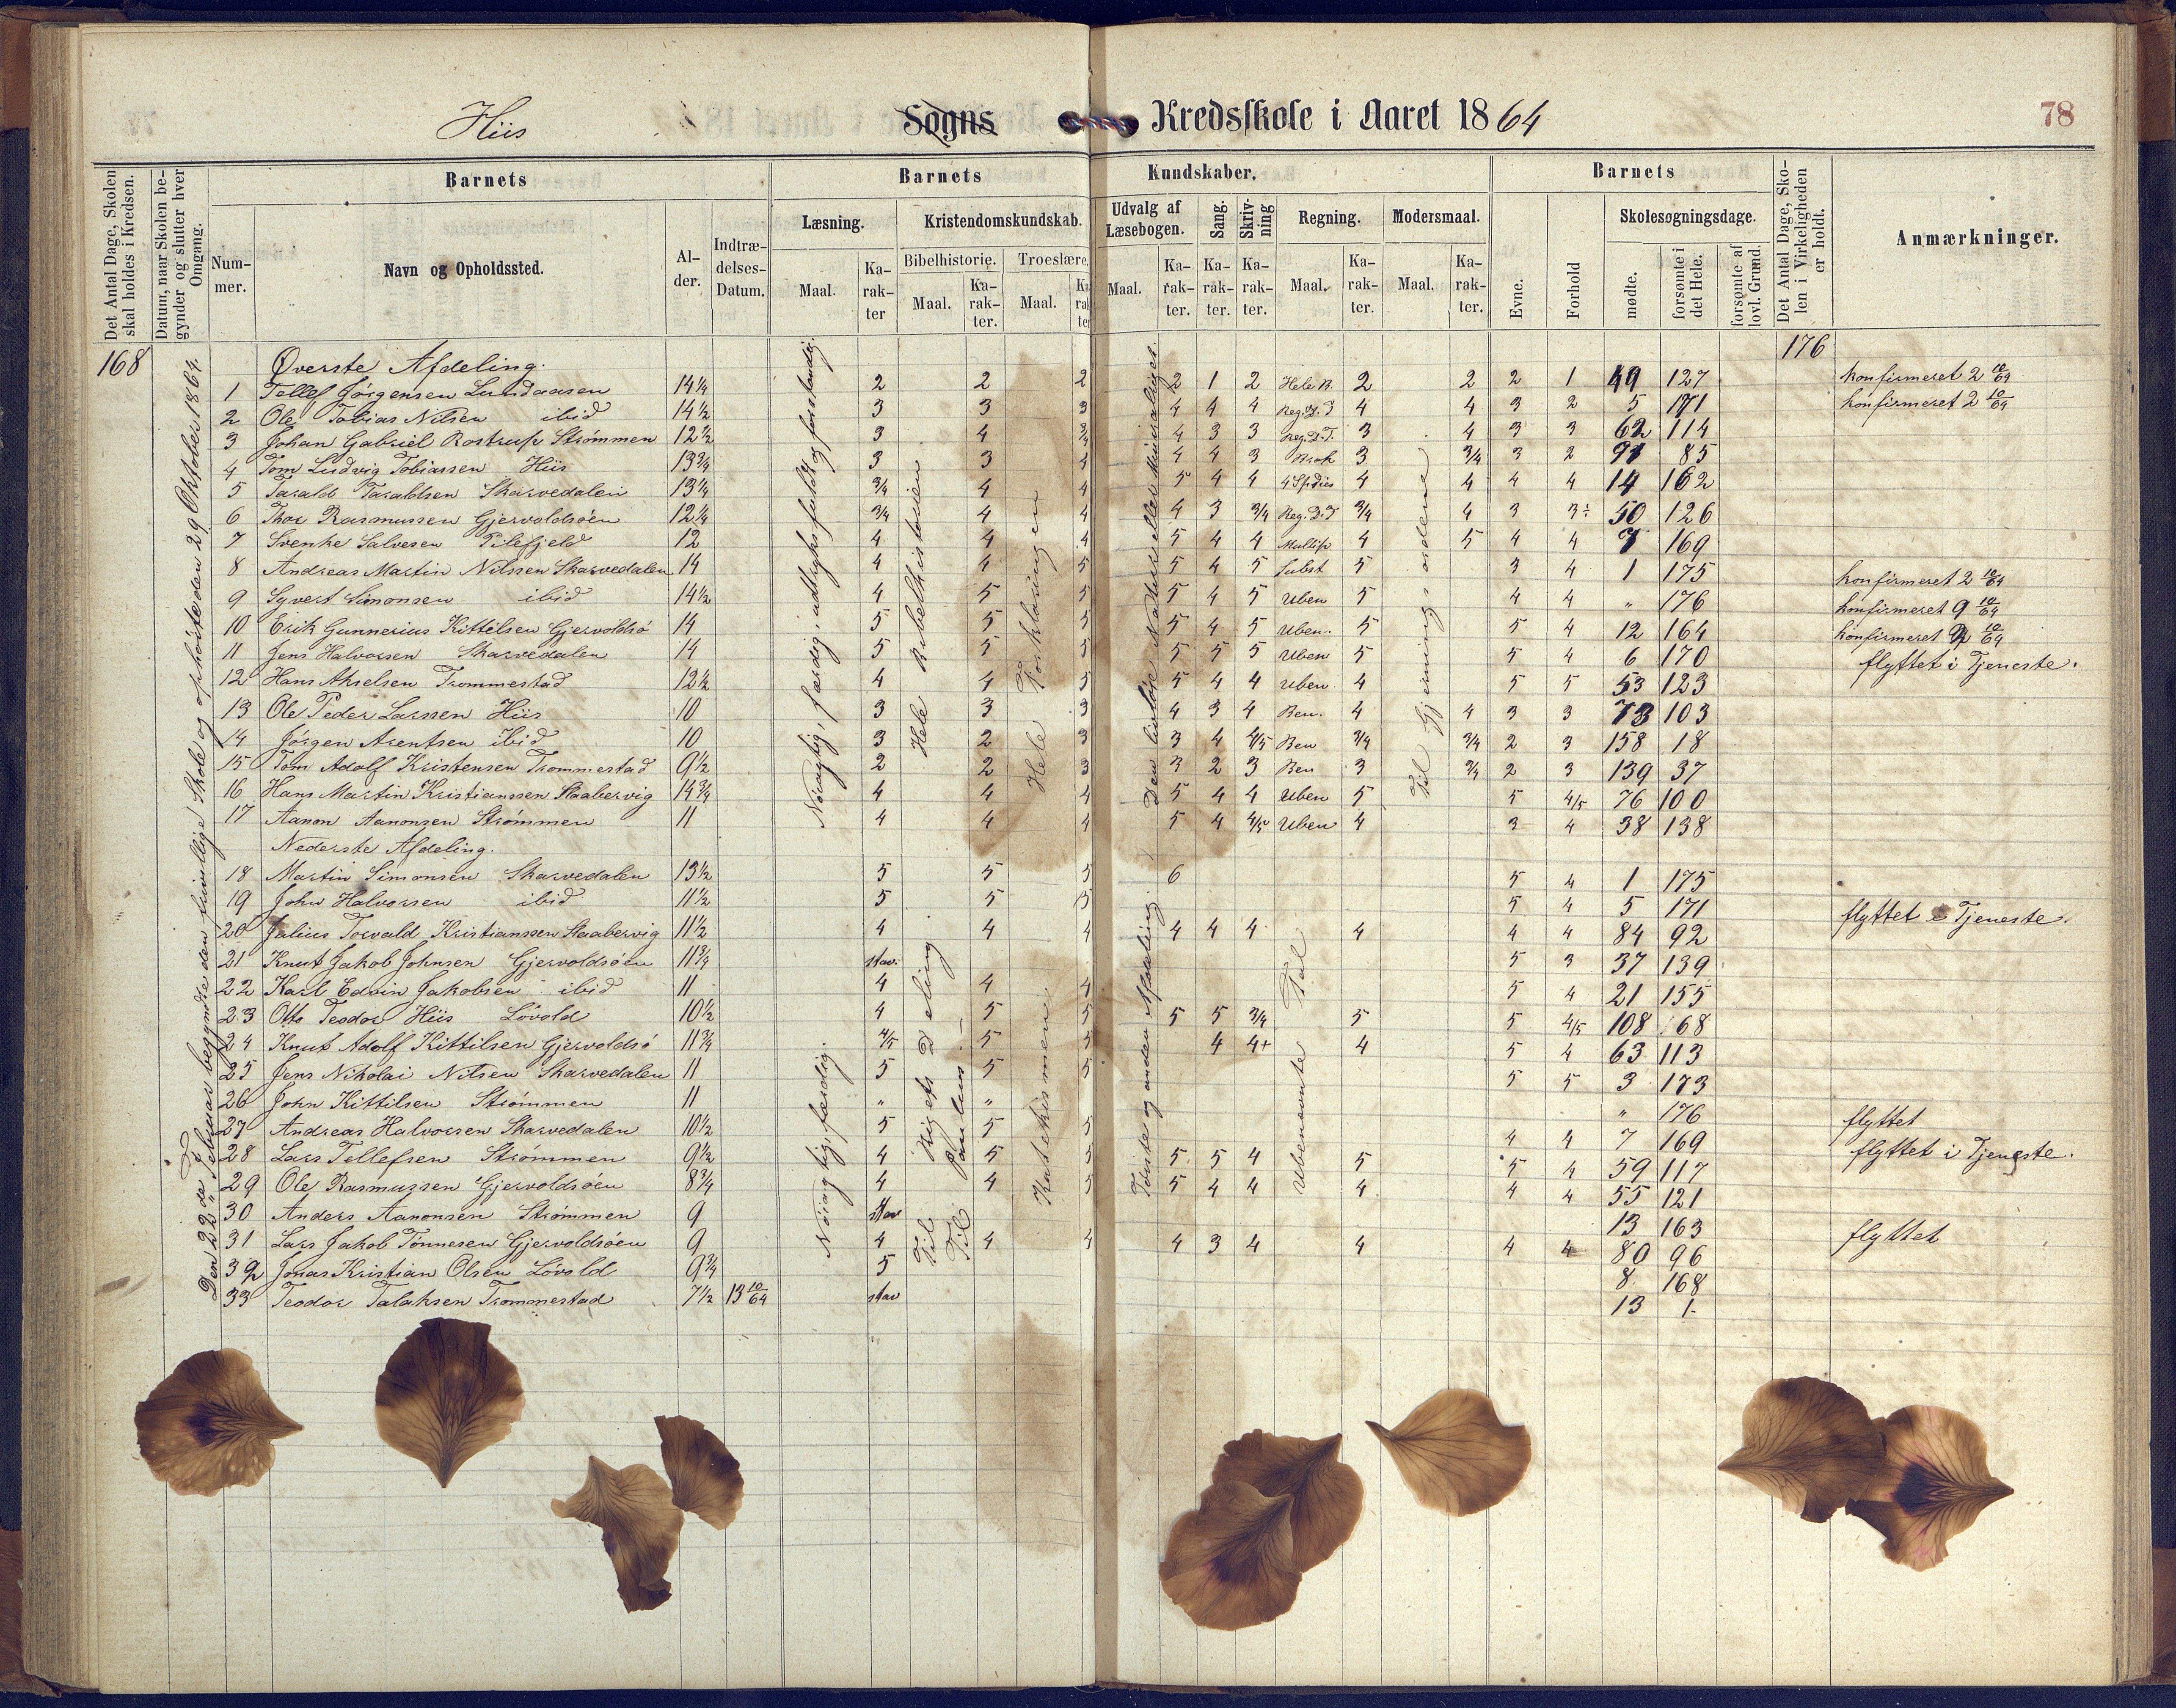 Hiis Sogns Kredsskole i Aaret 1864 78
Det Antal Dage, Skolen skal holdes i Kredsen.
Datum, naar Skolen begynder og slutter hver Omgang.
Barnets
Nummer.
Navn og Opholdssted.
Alder.
Indtrædelses-Datum.
Barnets Kundskaber.
Læsning.
Maal.
Karakter
Kristendomskundskab.
Bibelhistorie.
Maal.
Karakter.
Troeslære.
Maal.
Karakter
Udvalg af Læsebogen.
Maal.
Karakter.
Sang.
Karakter.
Skrivning
Karakter.
Regning.
Maal.
Karakter.
Modersmaal.
Maal.
Karakter.
Barnets
Evne.
Forhold
Skolesøgningsdage.
mødte.
forsømte i det Hele.
forsømte af lovl. Grund.
Det Antal Dage, Skolen i Virkeligheden er holdt.
Anmærkninger.
168
176
Den 22de Februar begyndte den frivillige Skole og ophørte den 29 Oktober 1864.
Nøiagtig, færdig, udtryksfuldt og forstandig.
Hele Bibelhistorien
Hele Forklaringen
Til Gjerningsordene
Øverste Afdeling.
1 Tellef Jørgensen Lundaasen 14¼ 2 2 2 2 1 2 Hele B. 2 2 2 1 49 127 konfirmeret 2 10/64
2 Ole Tobias Nilsen ibid 14½ 3 3 3 4 4 4 Reg. D. T 4 4 3 2 5 171 konfirmeret 2 10/64
3 Johan Gabriel Rostrup Strømmen 12½ 3 4 3/4 4 3 3 Reg. D. T. 3 4 3 3 62 114
4 Tom Ludvig Tobiassen Hiis 13¾ 3 3 4 4 4 3 Brøk 3 3/4 3 2 91 85
5 Tarald Taraldsen Skarvedalen 13¼ 3/4 4 4 5 4 4 4 Species 4 4 4 4 14 162
6 Thor Rasmussen Gjervoldsøen 12¼ 3/4 4 4 4 3 3/4 Reg. D. T 3/4 4 3 3÷ 50 126
7 Svenke Salvesen Pilefjeld 12 4 4 4 5 4 4 Multip 4 5 4 4 7 169
8 Andreas Martin Nilssen Skarvedalen 14 4 4 5 5 4 5 Subst 5 3 4 1 175 konfirmeret 2 10/64
9 Syvert Simonsen ibid 14½ 4 5 5 5 4 5 Uben 5 4 4 " 176 konfirmeret 9 10/64
10 Erik Gunnerius Kittilsen Gjervoldsø 14 5 5 5 5 4 5 Uben. 5 5 4 12 164 konfirmeret 2 10/64
11 Jens Halvorsen Skarvedalen 14 5 5 5 5 5 5 Uben 5 5 4 6 170 flyttet i Tjeneste.
12 Hans Akselsen Trommestad 12½ 4 4 5 5 4 4 Uben 4 5 5 53 123
13 Ole Peder Larssen Hiis 10 3 3 3 4 3 4 Ben. 4 4 3 3 73 103
14 Jørgen Arentsen ibid 10 3 2 3 3 4 4/5 Ben 3/4 3/4 2 3 158 18
15 Tom Adolf Kristensen Trommestad 9½ 2 2 3 3 2 3 Ben 3 3/4 2 3 139 37
16 Hans Martin Kristianssen Staabervig 14¾ 4 4 4 5 4 4 Uben 5 5 4/5 76 100
17 Aanon Aanonsen Strømmen 11 4 4 4 5 4 4/5 Uben 4 3 4 38 138
Nederste Afdeling.
Nøiagtig, færdig.
Til Rigets Deling
Til Paulus
Katekismen.
Første og anden Afdeling.
Ubenævnte Tal
18 Martin Simonsen Skarvedalen 13½ 5 5 5 6 5 4 1 175
19 John Halvorsen ibid 11½ 5 5 5 5 4 5 171 flyttet i Tjeneste.
20 Julius Torvald Kristianssen Staabervig 11½ 4 4 4 4 4 4 4 4 4 84 92
21 Knut Jakob Johnsen Gjervoldsøen 11¾ stav. 5 3 37 139
22 Karl Edvin Jakobsen ibid 11 4 4 4 5 4 21 155
23 Otto Teodor Hiis Løvold 10½ 4 5 5 5 5 3/4 5 5 4/5 108 68
24 Knut Adolf Kittilsen Gjervoldsø 11¾ 4/5 5 5 4 4+ 4 5 4 63 113
25 Jens Nikolai Nilsen Skarvedalen 11 5 5 5 5 5 3 173
26 John Kittilsen Strømmen 11 " " " 176 flyttet
27 Andreas Halvorsen Skarvedalen 10½ 5 5 5 4 4 7 169 flyttet i Tjeneste.
28 Lars Tellefsen Strømmen 9½ 4 5 5 5 5 4 5 5 4 59 117
29 Ole Rasmussen Gjervoldsøen 8¾ 4 4 5 5 4 4 4 4 4 55 121
30 Anders Aanonsen Strømmen 9 stav 13 163 flyttet
31 Lars Jakob Tønnesen Gjervoldsøen 9 4 4 4 4 3 4 4 4 4 80 96
32 Jonas Kristian Olsen Løvold 9¾ 5 8 168
33 Teodor Talaksen Trommestad 7½ 13 10/64 stav 13 1.